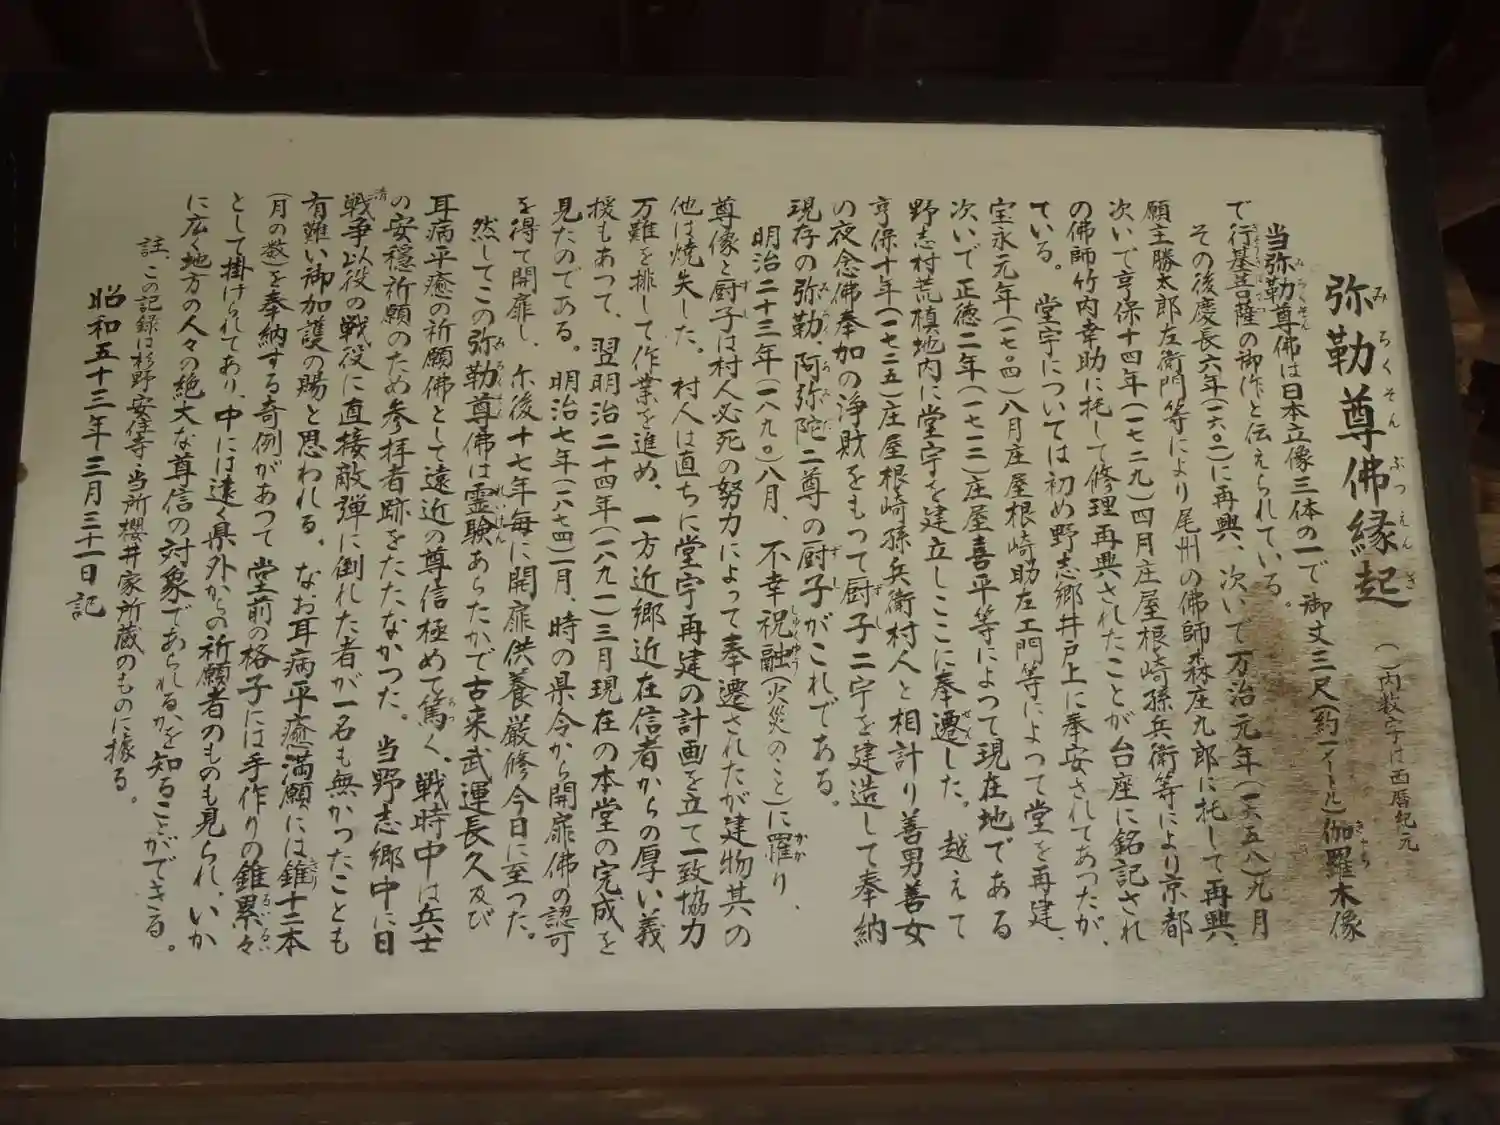 弥勒尊佛縁起
( )内数字は西暦紀元
当弥勒尊佛は日本立像三体の一で御丈三尺(約一メートル)伽羅木像
で行基菩薩の御作と伝えられている。
その後慶長六年(一六〇一)に再興、次いで万治元年(一六五八)九月
願主勝太郎左衛門等により尾州の佛師森庄九郎に托して再興、
次いで享保十四年(一七二九)四月庄屋根崎孫兵衛等により京都
の佛師竹内幸助に托して修理再興されたことが台座に銘記され
ている。堂宇については初め野志郷井戸上に奉安されてあつたが、
宝永元年(一七〇四)八月庄屋根崎助左エ門等によつて堂を再建、
次いで正徳二年(一七一二)庄屋喜平等によつて現在地である
野志村荒槙地内に堂宇を建立しここに奉遷した。越えて
享保十年(一七二五)庄屋根崎孫兵衛村人と相計り善男善女
の夜念佛奉加の浄財をもつて厨子二宇を建造して奉納
現存の弥勒、阿弥陀二尊の厨子がこれである。
明治二十三年(一八九〇)八月、不幸祝融(火災のこと)に罹り、
尊像と厨子は村人必死の努力によって奉遷されたが建物其の
他は焼失した。村人は直ちに堂宇再建の計画を立て一致協力
万難を排して作業を進め、一方近郷近在信者からの厚い義
援もあつて、翌明治二十四年(一八九一)三月現在の本堂の完成を
見たのである。明治七年(一八七四)二月、時の県令から開扉佛の認可
を得て開扉し、尓後十七年毎に開扉供養厳修今日に至つた。
然してこの弥勒尊佛は霊験あらたかで古来武運長久及び
耳病平癒の祈願佛として遠近の尊信極めて篤く、戦時中は兵士
の安穏祈願のため参拝者跡をたたなかつた。当野志郷中に日
清戦争以役の戦役に直接敵弾に倒れた者が一名も無かつたことも
有難い御加護の賜と思われる。なお耳病平癒満願には錐十二本
(月の数)を奉納する奇例があつて堂前の格子には手作りの錐累々
として掛けられてあり、中には遠く県外からの祈願者のものも見られ、いか
に広く地方の人々の絶大な尊信の対象であられるかを知ることができる。
註 この記録は杉野安住寺、当所櫻井家所蔵のものに據る。
昭和五十三年三月三十一日記